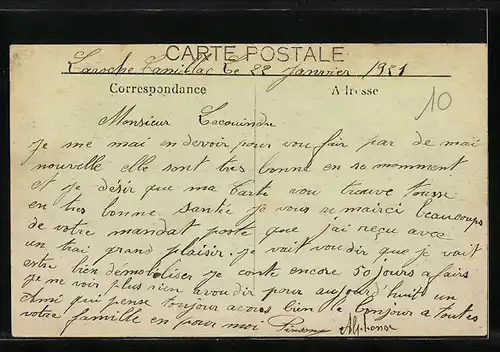 CARTE POSTALE
Laroche Le 22 Janvier 1921
Correspondance Adresse
10
Monsieur Lecouindre
Je me mai en devoir pour vou fair par de mai
nouvelle elle sont tres bonne en se momment
et je désir que ma Carte vou trouve tousse
en tres bonne santée je vous se mairci beaucoups
de votre mandat poste que j'ai reçu avec
un trai grand plaisir. je vait vou dir que je vait
estre bien démobiliser je conte encore 50 jours a fairs
je me voir plus rien avou dir pour aujourd'huit un
ami qui pense toujour a vous bien le bonjour a toutes
votre famille en pour moi Alphonse